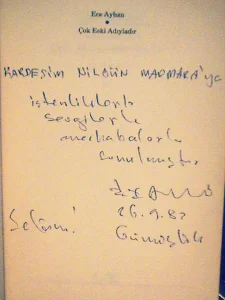 Ece Ayhan
Çok Eski Adıyladır
KARDEŞİM NİLGÜN MARMARA'ya
içtenliklerle
sevgilerle
merhabalarla
sunulmuştur
26.9.82
Selâmi
Gümüşlük